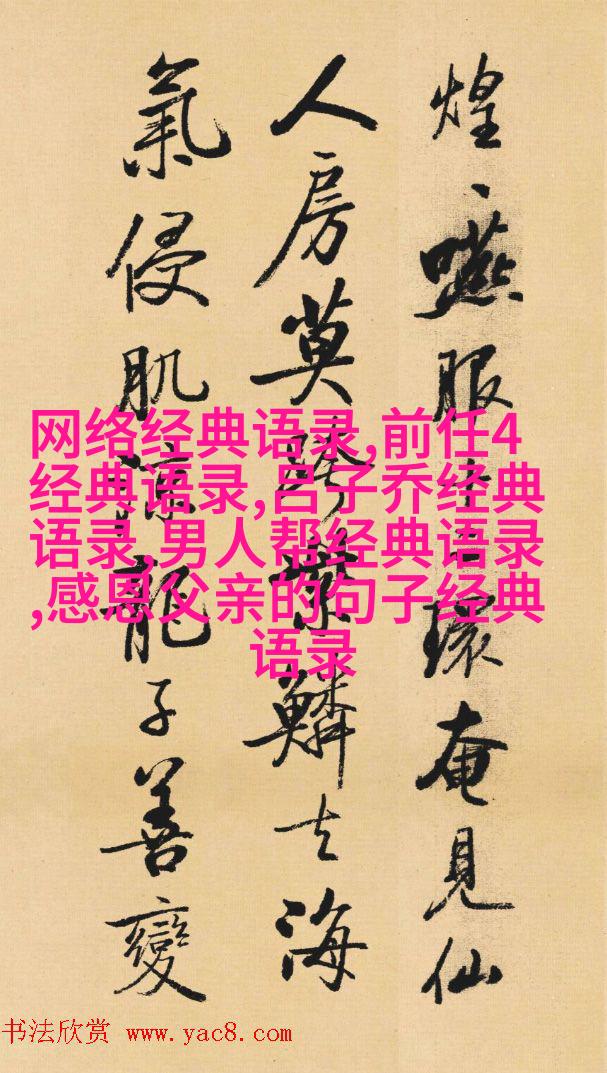 煌、嚥服十二環奄見仙
人房莫跨紫鱗去海
氣侵肌涼龍子善變
网络经典语录,前任4
经典语录,吕子乔经典
语录,男人帮经典语录
,感恩父亲的句子经典
语录
书法欣赏 www.yac8.com